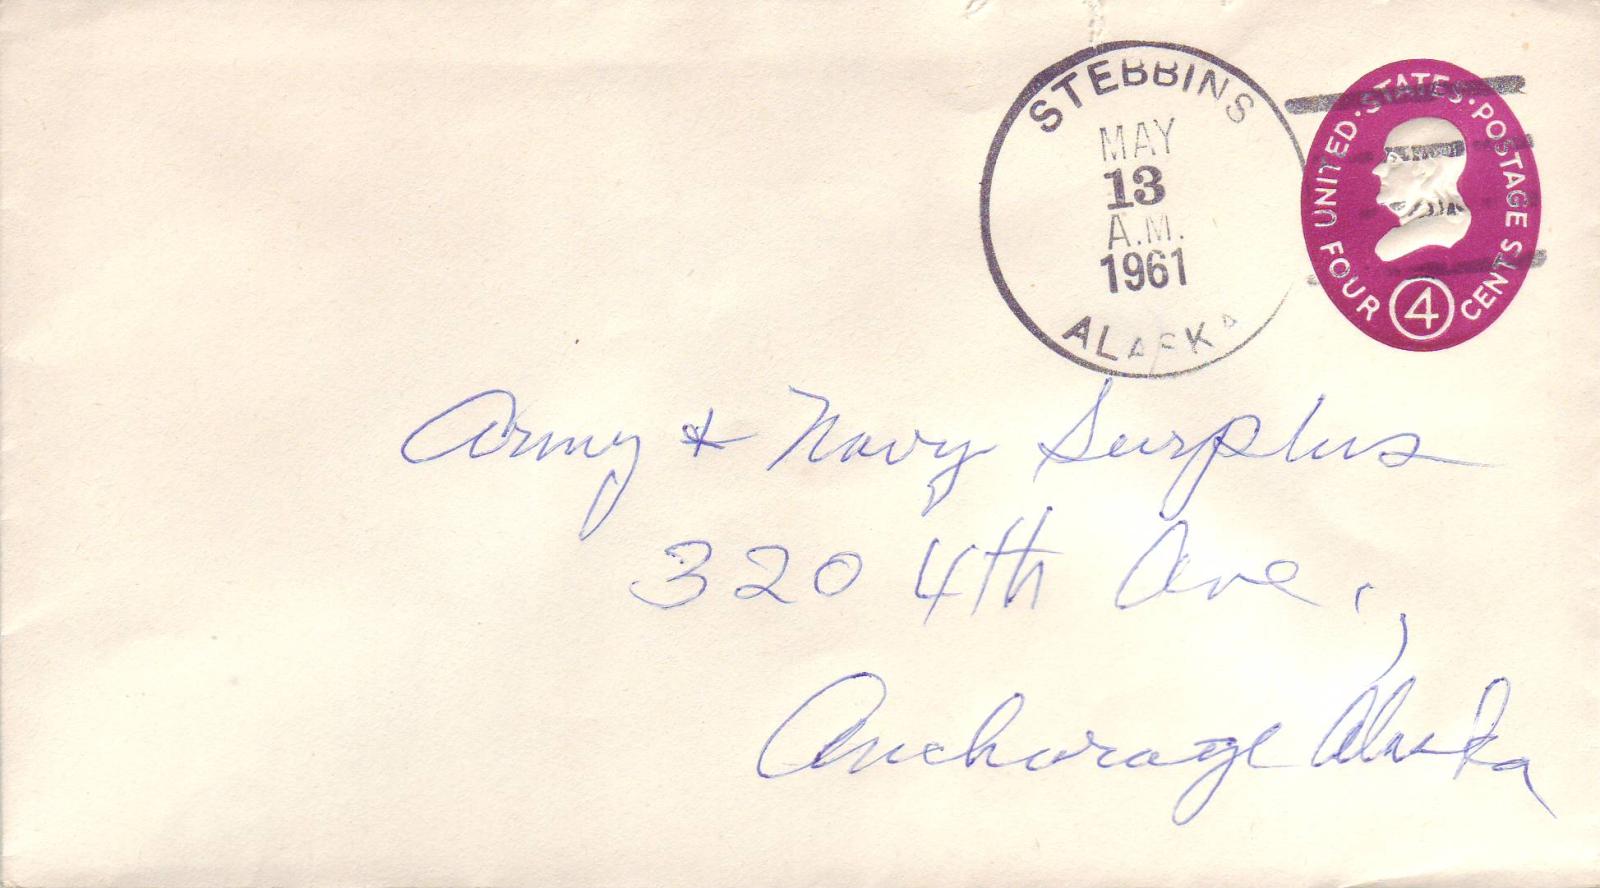 STEBBINS
MAY
13
A.M.
1961
ALASKA
UNITED·STATES·POSTAGE
FOUR 4 CENTS
Army & Navy Surplus
320 4th Ave.,
Anchorage Alaska